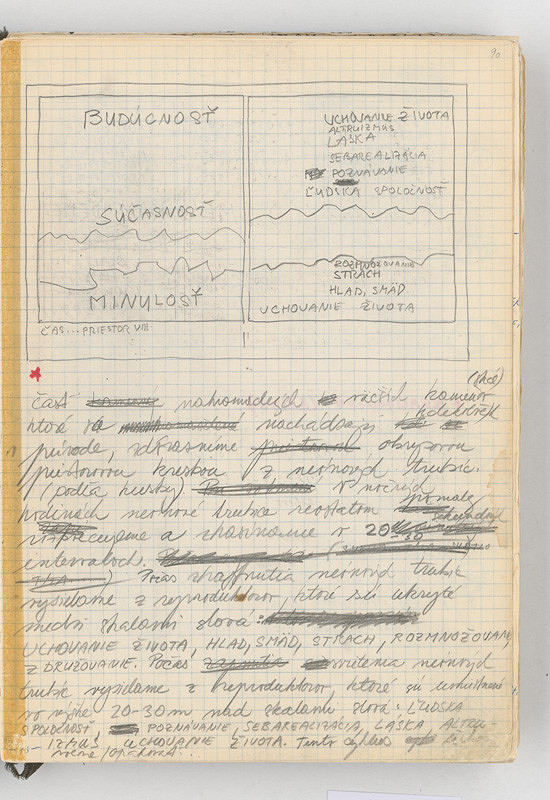 90
BUDÚCNOSŤ
SÚČASNOSŤ
MINULOSŤ
ČAS... PRIESTOR VIII
UCHOVANIE ŽIVOTA
ALTRUIZMUS
LÁSKA
SEBAREALIZÁCIA
POZNÁVANIE
ĽUDSKÁ SPOLOČNOSŤ
ROZMNOŽOVANIE
STRACH
HLAD, SMÄD
UCHOVANIE ŽIVOTA
časť nahromadených väčších kameňov
ktoré sa nachádzajú kdekoľvek
prírode, zdôrazníme obrysovou
priestorovou kresbou z neónových trubíc.
(podľa kresby) V nočných
hodinách neónové trubice reostatom pomaly
rozsvecujeme a zhasíname v 20
intervaloch.
Počas zhasnutia neónových trubíc
vysielame z reproduktorov, ktoré sú ukryté
medzi skalami slová:
UCHOVANIE ŽIVOTA, HLAD, SMÄD, STRACH, ROZMNOŽOVANIE,
ZDRUŽOVANIE. Počas svietenia neónových
trubíc vysielame z reproduktorov, ktoré sú umiestnené
vo výške 20-30m nad skalami slová: ĽUDSKÁ
SPOLOČNOSŤ, POZNÁVANIE, SEBAREALIZÁCIA, LÁSKA ALTRU-
IZMUS UCHOVANIE ŽIVOTA. Tento cyklus